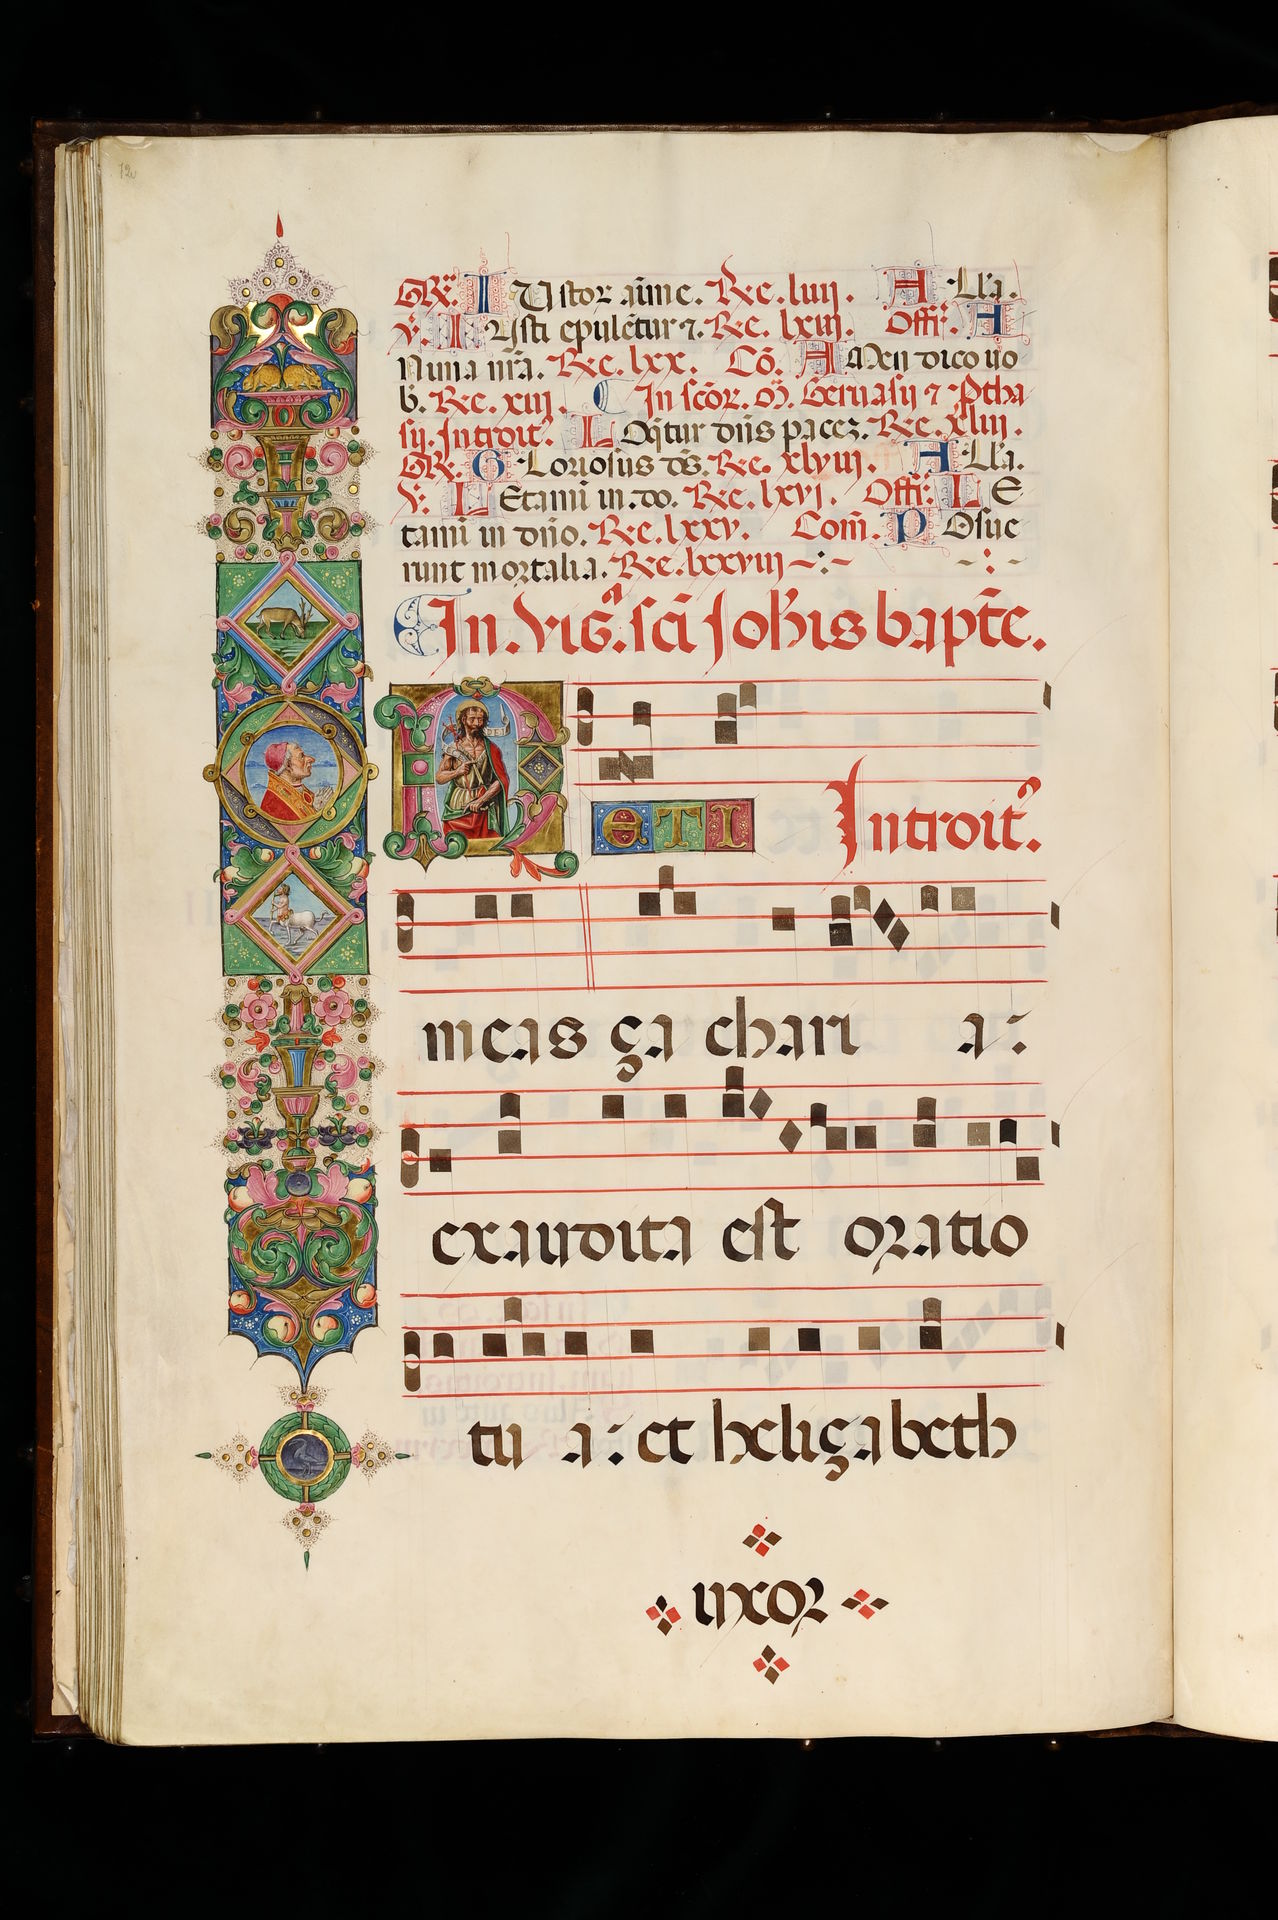 72
GR̄. IUstoꝝ aīme. Re. luii. Alla.
℣. IUsti epulēttur ⁊. Re. lxiii. Offr̄. A
Nima nr̄a. Re. lxx. Cō. AMen dico uo
b̄. Re. xiii. In scōꝝ. M̄. Geruasii ⁊ Ptha
sii. Introit᷒. LOqͥtur dn̄s pacez. Re. xliii.
GR̄. GLoriosus ds̄. Re. xlviii. Alla.
℣. LEtamī in. do. Re. lxvi. Offr̄. LE
tamī in dn̄o. Re. lxxv. Com̄. POsue
runt mortalia. Re. lxxviii
In. Vig̃. sc̄i Joh̄is bapt̄e.
NE TI Introit᷒.
meas ça chari a:
exaudita est oratio
tu a: et heliçabeth
uxor